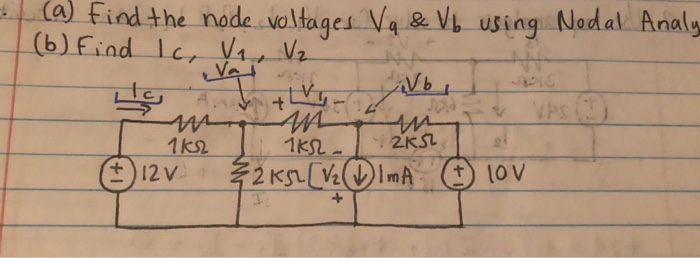 (a) Find the node voltages Va & Vb using Nodal Analy
(b) Find Ic, V1, V2
Va
Vb
Ic
+ V1 -
1KΩ
1KΩ
2KΩ
12V
2KΩ
V2
-
+
1mA
10V